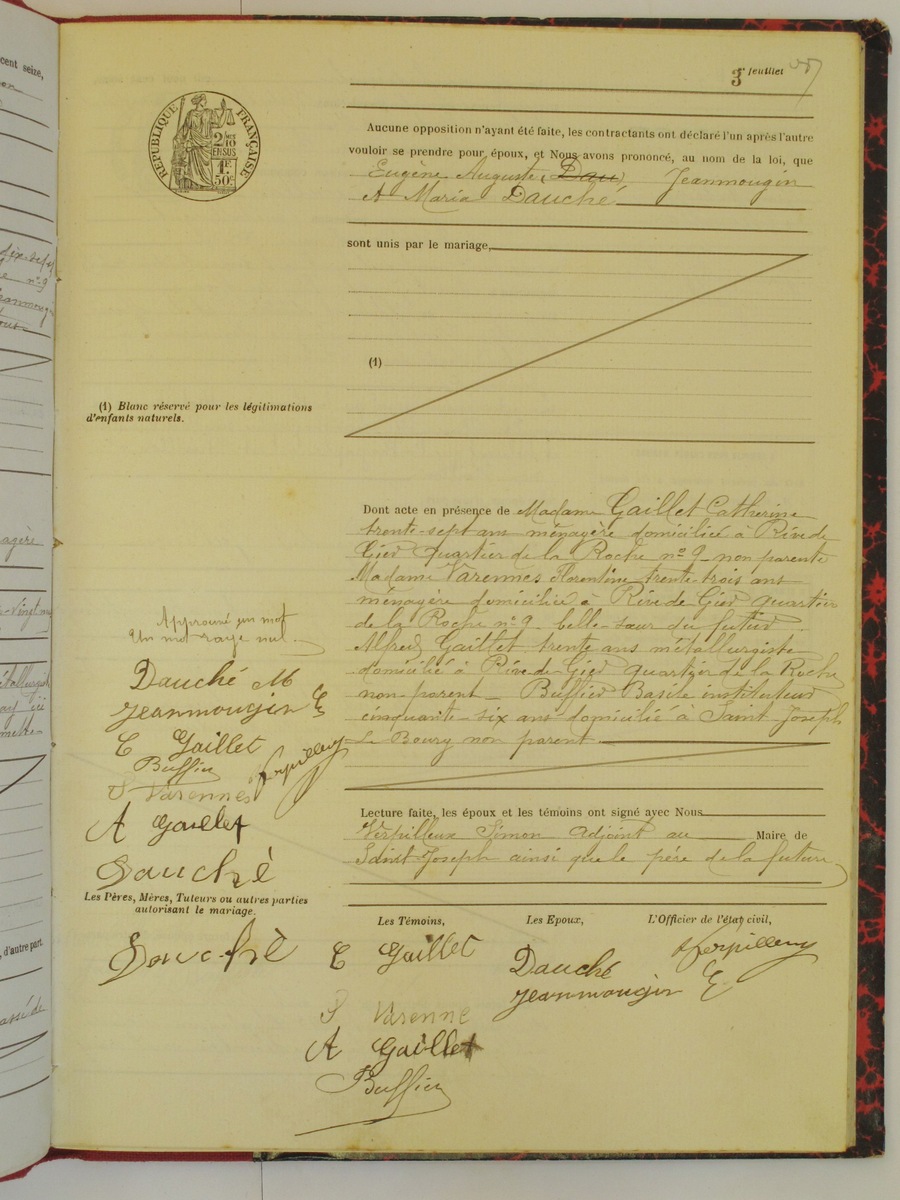 3e feuillet
RÉPUBLIQUE FRANÇAISE
2/10
EN SUS
1F.
50c
Aucune opposition n'ayant été faite, les contractants ont déclaré l'un après l'autre
vouloir se prendre pour époux, et Nous avons prononcé, au nom de la loi, que
Eugène Auguste Dau Jeanmougin
et Maria Dauché
sont unis par le mariage,
(1)
(1) Blanc réservé pour les légitimations
d'enfants naturels.
Dont acte en présence de Madame Gaillet Catherine
trente-sept ans ménagère domiciliée à Rive de
Gier quartier de la Roche nº 9 non parente
Madame Varennes Florentine trente-trois ans
ménagère domiciliée à Rive de Gier quartier
de la Roche nº 9 belle-sœur du futur
Alfred Gaillet trente ans métallurgiste
domicilié à Rive-de-Gier quartier de la Roche
non parent Buffier Basile instituteur
cinquante-six ans domicilié à Saint Joseph
Le Bourg non parent
Approuvé un mot
Un mot rayé nul
Dauché M
Jeanmougin E
C Gaillet
Buffier
Verpilleux
Varennes
A Gaillet
Dauché
Lecture faite, les époux et les témoins ont signé avec Nous
Verpilleux Simon Adjoint au Maire de
Saint Joseph ainsi que le père de la future
Les Pères, Mères, Tuteurs ou autres parties
autorisant le mariage.
Les Témoins,
Les Epoux,
L'Officier de l'état civil,
Dauché
C Gaillet
Dauché
Verpilleux
Jeanmougin E.
Varenne
A Gaillet
Buffier